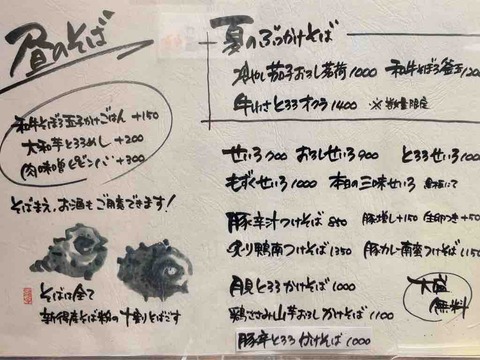 昼のそば
和牛そぼろ玉子かけごはん +150
大和芋とろろめし +200
肉味噌ビビンバ +300
そばまえ、お酒もご用意できます!
そばは全て
新得産そば粉の十割りそばです
夏のぶっかけそば
冷やし茄子おろし茗荷 1000
和牛そぼろ釜玉 1200
牛わさとろろオクラ 1400 ※数量限定
せいろ 700 おろしせいろ 900 とろろせいろ 1000
もずくせいろ 1000 本日の三味せいろ 黒板にて
豚辛汁つけそば 850 豚増し +150 生卵つき +50
炙り鴨南つけそば 1350 豚カレー南蛮つけそば 1150
月見とろろかけそば 1000
鶏ささみ山芋おろしかけそば 1100
豚辛とろろかけそば 1000
大盛
無料